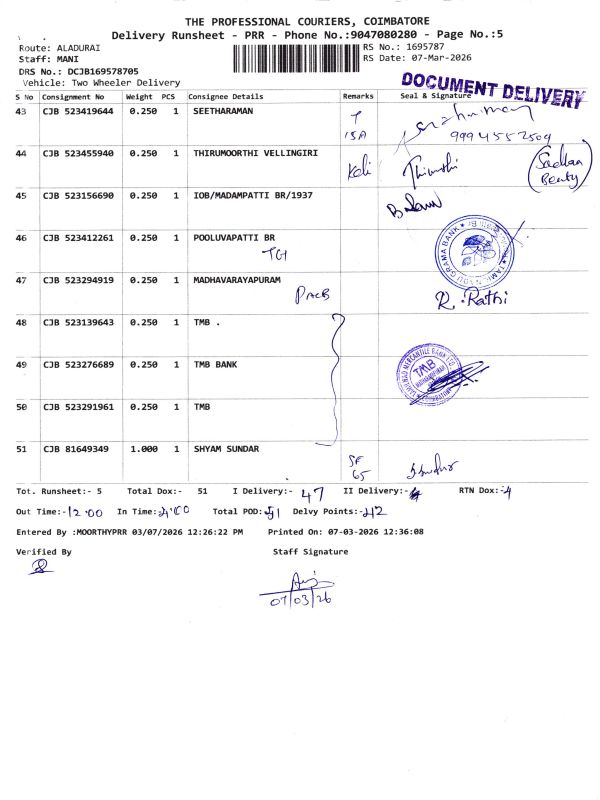 THE PROFESSIONAL COURIERS, COIMBATORE
Delivery Runsheet - PRR - Phone No.:9047080280 - Page No.:5
Route: ALADURAI
RS No.: 1695787
Staff: MANI
RS Date: 07-Mar-2026
DRS No.: DCJB169578705
Vehicle: Two Wheeler Delivery
DOCUMENT DELIVERY
S No Consignment No Weight PCS Consignee Details Remarks Seal & Signature
43 CJB 523419644 0.250 1 SEETHARAMAN
9994552509
44 CJB 523455940 0.250 1 THIRUMOORTHI VELLINGIRI Thirumoorthi
Beauty
45 CJB 523156690 0.250 1 IOB/MADAMPATTI BR/1937
46 CJB 523412261 0.250 1 POOLUVAPATTI BR
TGI
47 CJB 523294919 0.250 1 MADHAVARAYAPURAM
PACB R. Rathi
48 CJB 523139643 0.250 1 TMB .
49 CJB 523276689 0.250 1 TMB BANK
TMB
50 CJB 523291961 0.250 1 TMB
51 CJB 81649349 1.000 1 SHYAM SUNDAR
SF
65
Tot. Runsheet:- 5 Total Dox:- 51 I Delivery:- 47 II Delivery:- RTN Dox:-4
Out Time:-12.00 In Time:-4.00 Total POD:-51 Delvy Points:-42
Entered By :MOORTHYPRR 03/07/2026 12:26:22 PM Printed On: 07-03-2026 12:36:08
Verified By Staff Signature
07/03/26